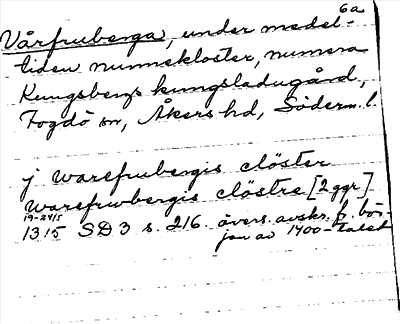 6a
Vårfruberga, under medel-
tiden nunnekloster, numera
Kungsbergs kungsladugård,
Fogdö sn, Åkers hd, Söderm. l.
j warefrubergis clöster
warefruwbergis clöstre [2 ggr]
19-24/5
1315 SD 3 s. 216. övers. avskr. fr. bör-
jan av 1400-talet